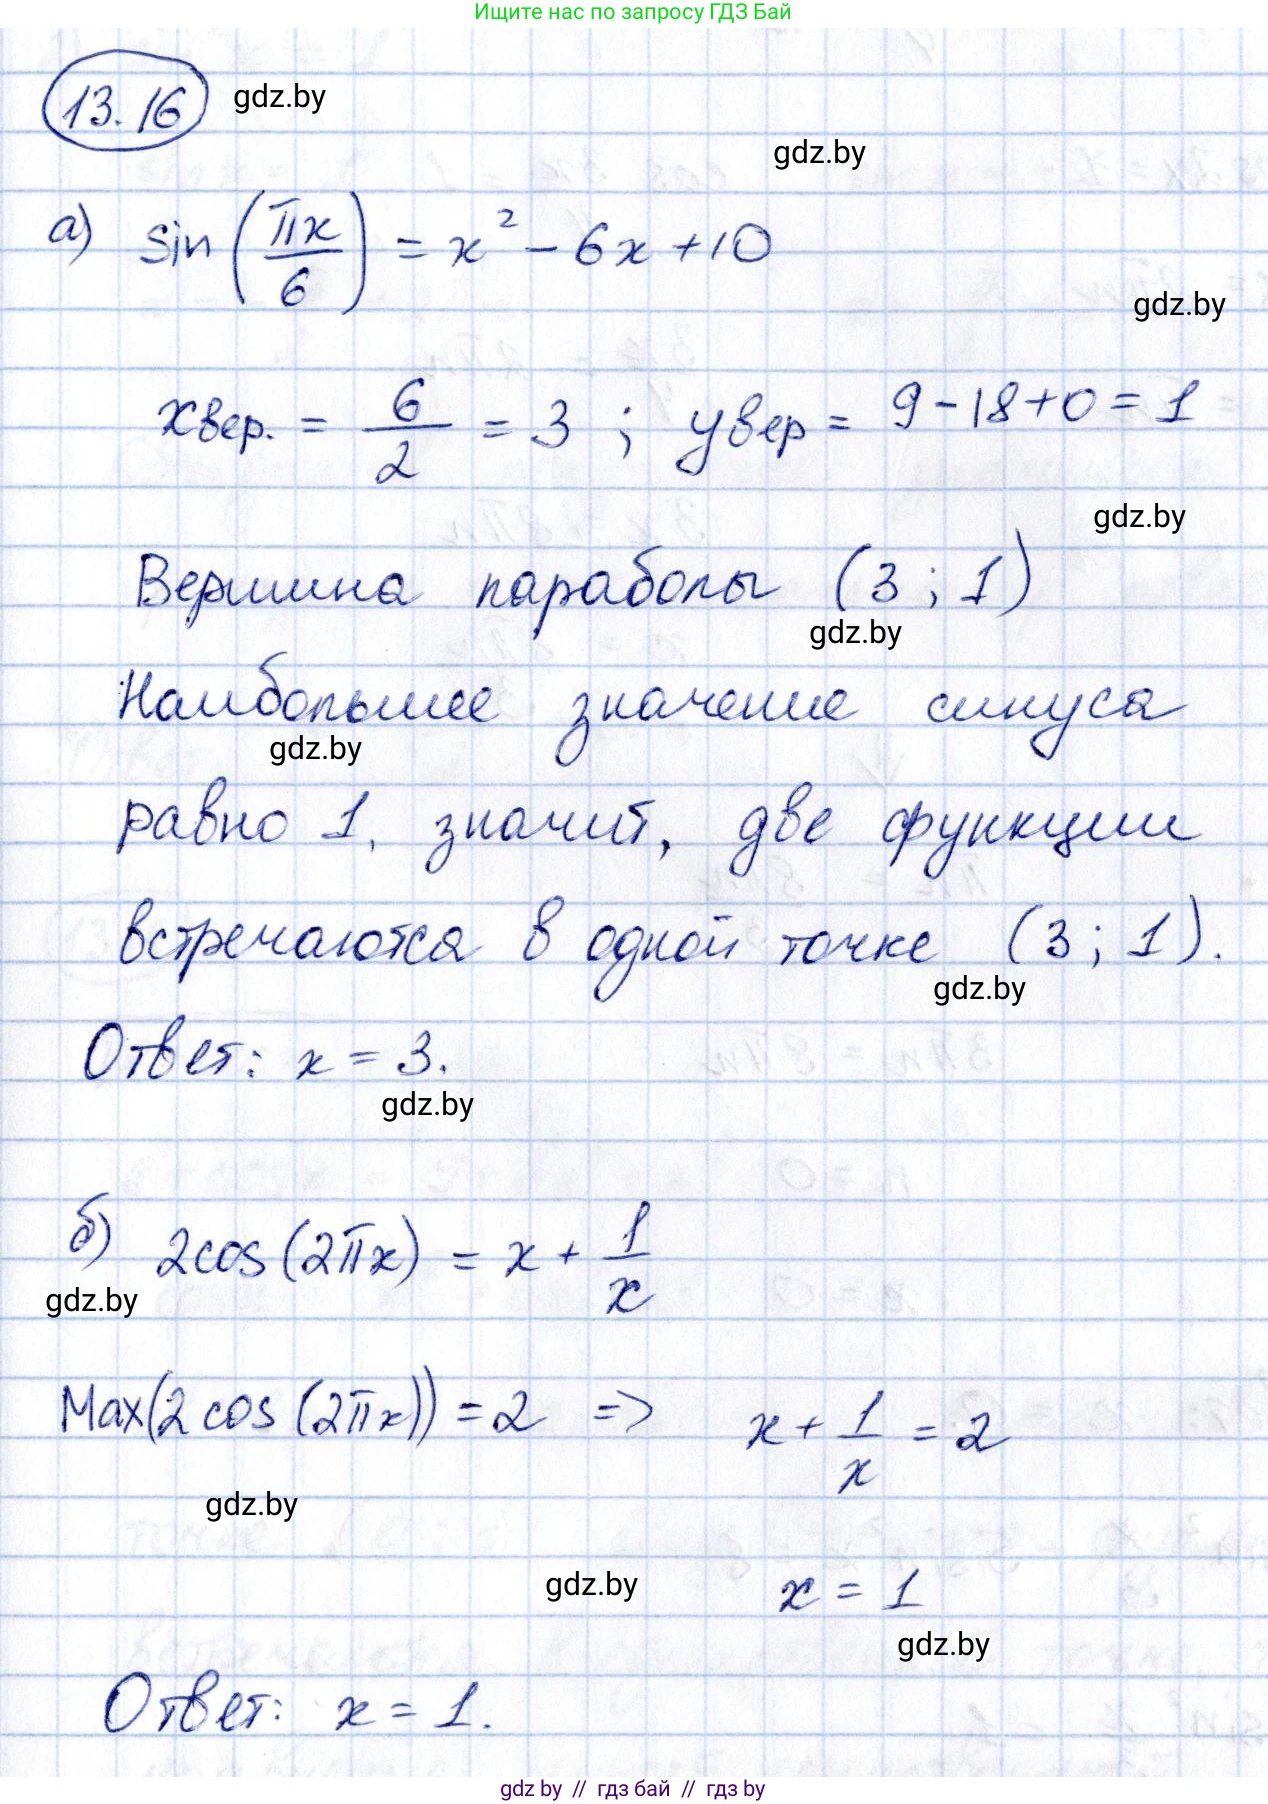 Ищите нас по запросу ГДЗ Бай
13.16 gdz.by
gdz.by
а) sin(πx/6) = x² - 6x + 10
gdz.by
xвер. = 6/2 = 3 ; yвер = 9 - 18 + 0 = 1
gdz.by
Вершина параболы (3 ; 1)
gdz.by
Наибольшее значение синуса
gdz.by
равно 1, значит, две функции
встречаются в одной точке (3 ; 1).
gdz.by
Ответ: x = 3.
gdz.by
б) 2cos(2πx) = x + 1/x
gdz.by
Max(2cos(2πx)) = 2 => x + 1/x = 2
gdz.by
gdz.by
x = 1
gdz.by
Ответ: x = 1.
gdz by // гдз бай // гдз by